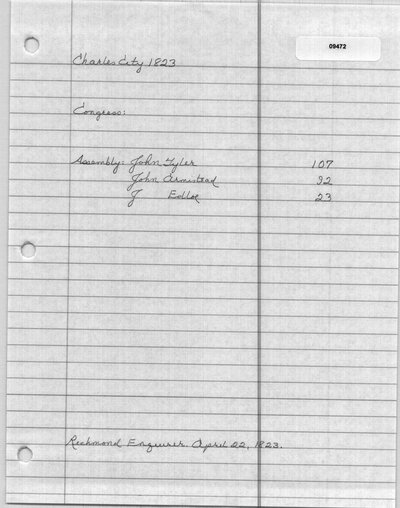 09472
Charles City 1823
Congress:
Assembly: John Tyler 107
John Armistead 92
J Edloe 23
Richmond Enquirer. April 22, 1823.